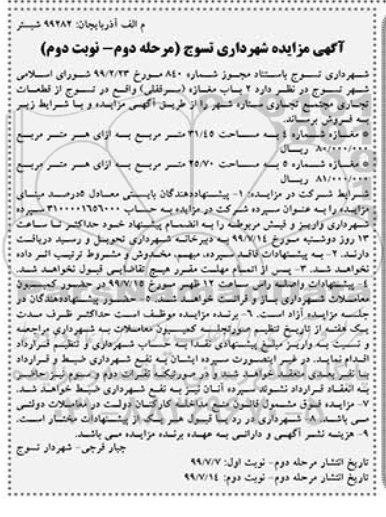 م الف آذربایجان: ۹۹۲۸۲ شبستر
آگهی مزایده شهرداری تسوج (مرحله دوم- نوبت دوم)
شهرداری تسوج باستناد مجوز شماره ۸۴۰ مورخ ۹۹/۲/۲۳ شورای اسلامی
شهر تسوج در نظر دارد ۲ باب مغازه (سرقفلی) واقع در تسوج از قطعات
تجاری مجتمع تجاری ستاره شهر را از طریق آگهی مزایده و با شرایط زیر
به فروش برساند.
* مغازه شماره ۴ به مساحت ۳۱/۴۵ متر مربع به ازای هر متر مربع
۸۰/۰۰۰/۰۰۰ ریال
* مغازه شماره ۵ به مساحت ۲۵/۷۰ متر مربع به ازای هر متر مربع
۸۱/۰۰۰/۰۰۰ ریال
شرایط شرکت در مزایده: ۱- پیشنهاددهندگان بایستی معادل ۵درصد مبنای
مزایده را به عنوان سپرده شرکت در مزایده به حساب ۳۱۰۰۰۰۱۶۵۶۰۰۰ سپرده
شهرداری واریز و فیش مربوطه را به انضمام پیشنهاد خود حداکثر تا ساعت
۱۳ روز دوشنبه مورخ ۹۹/۷/۱۴ به دبیرخانه شهرداری تحویل و رسید دریافت
دارند. ۲- به پیشنهادات فاقد سپرده، مبهم، مخدوش و مشروط ترتیب اثر داده
نخواهد شد. ۳- پس از اتمام مهلت مقرر هیچ تقاضایی قبول نخواهد شد.
۴- پیشنهادات واصله راس ساعت ۱۲ ظهر مورخ ۹۹/۷/۱۵ در حضور کمیسیون
معاملات شهرداری باز و قرائت خواهد شد. ۵- حضور پیشنهاددهندگان در
جلسه مزایده آزاد است. ۶- برنده مزایده موظف است حداکثر ظرف مدت
یک هفته از تاریخ تنظیم صورتجلسه کمیسیون معاملات به شهرداری مراجعه
و نسبت به واریز مبلغ پیشنهادی نقدا به حساب شهرداری و تنظیم قرارداد
اقدام نماید. در غیر اینصورت سپرده ایشان به نفع شهرداری ضبط و قرارداد
با نفر بعدی منعقد خواهد شد. و در صورتیکه نفرات دوم و سوم نیز حاضر
به انعقاد قرارداد نشوند سپرده آنان نیز به نفع شهرداری ضبط خواهد شد.
۷- مزایده فوق مشمول قانون منع مداخله کارکنان دولت در معاملات دولتی
می باشد. ۸- شهرداری در رد یا قبول هر یک از پیشنهادات مختار است.
۹- هزینه نشر آگهی و دارائی به عهده برنده مزایده می باشد.
جبار فرجی- شهردار تسوج
تاریخ انتشار مرحله دوم- نوبت اول: ۹۹/۷/۷
تاریخ انتشار مرحله دوم- نوبت دوم: ۹۹/۷/۱۴